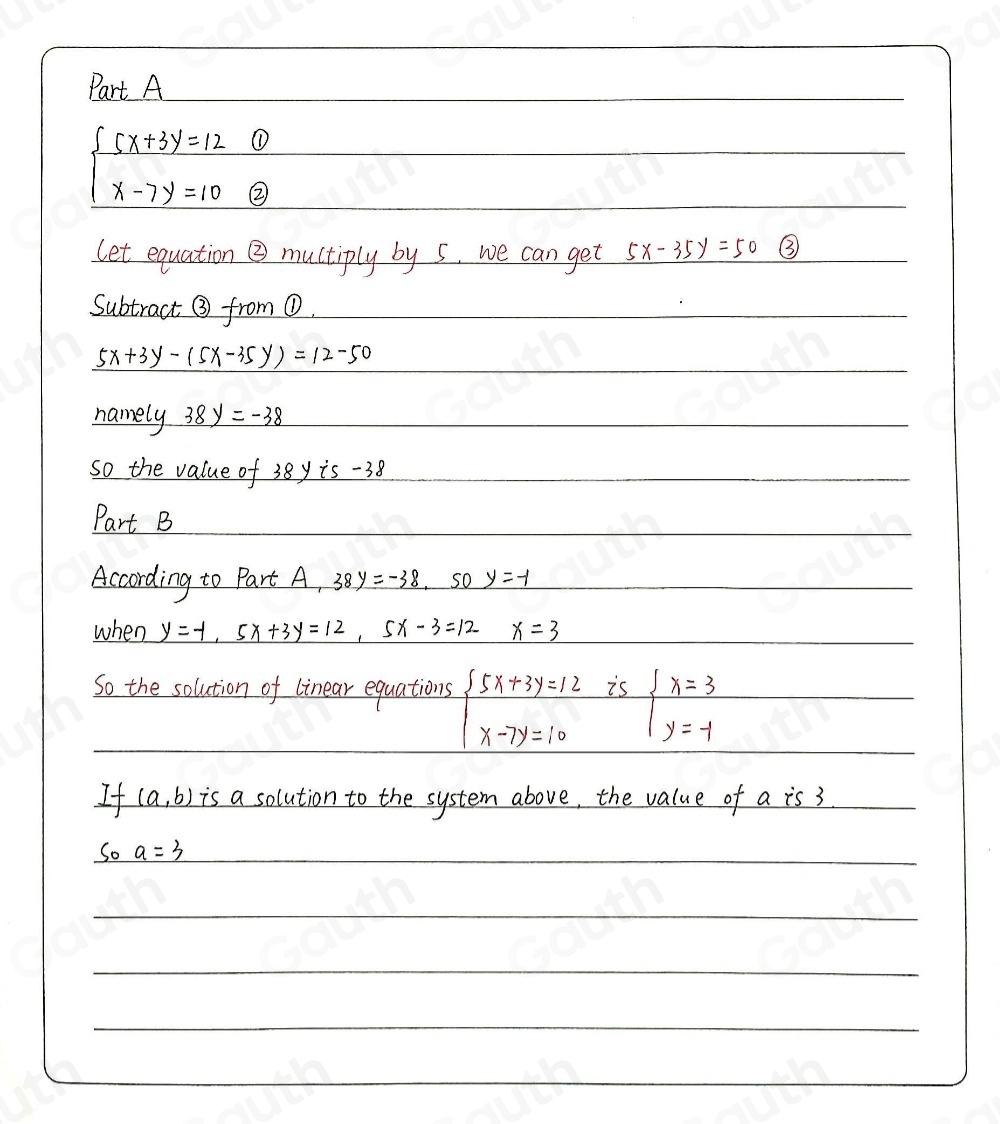 Part A
{ 5x+3y=12 ①
x-7y=10 ②
Let equation ② multiply by 5. we can get 5x-35y=50 ③
Subtract ③ from ①.
5x+3y-(5x-35y)=12-50
namely 38y=-38
so the value of 38y is -38
Part B
According to Part A, 38y=-38. so y=-1
when y=-1, 5x+3y=12, 5x-3=12 x=3
So the solution of linear equations { 5x+3y=12 is { x=3
x-7y=10 y=-1
If (a,b) is a solution to the system above, the value of a is 3.
So a=3
Gauth